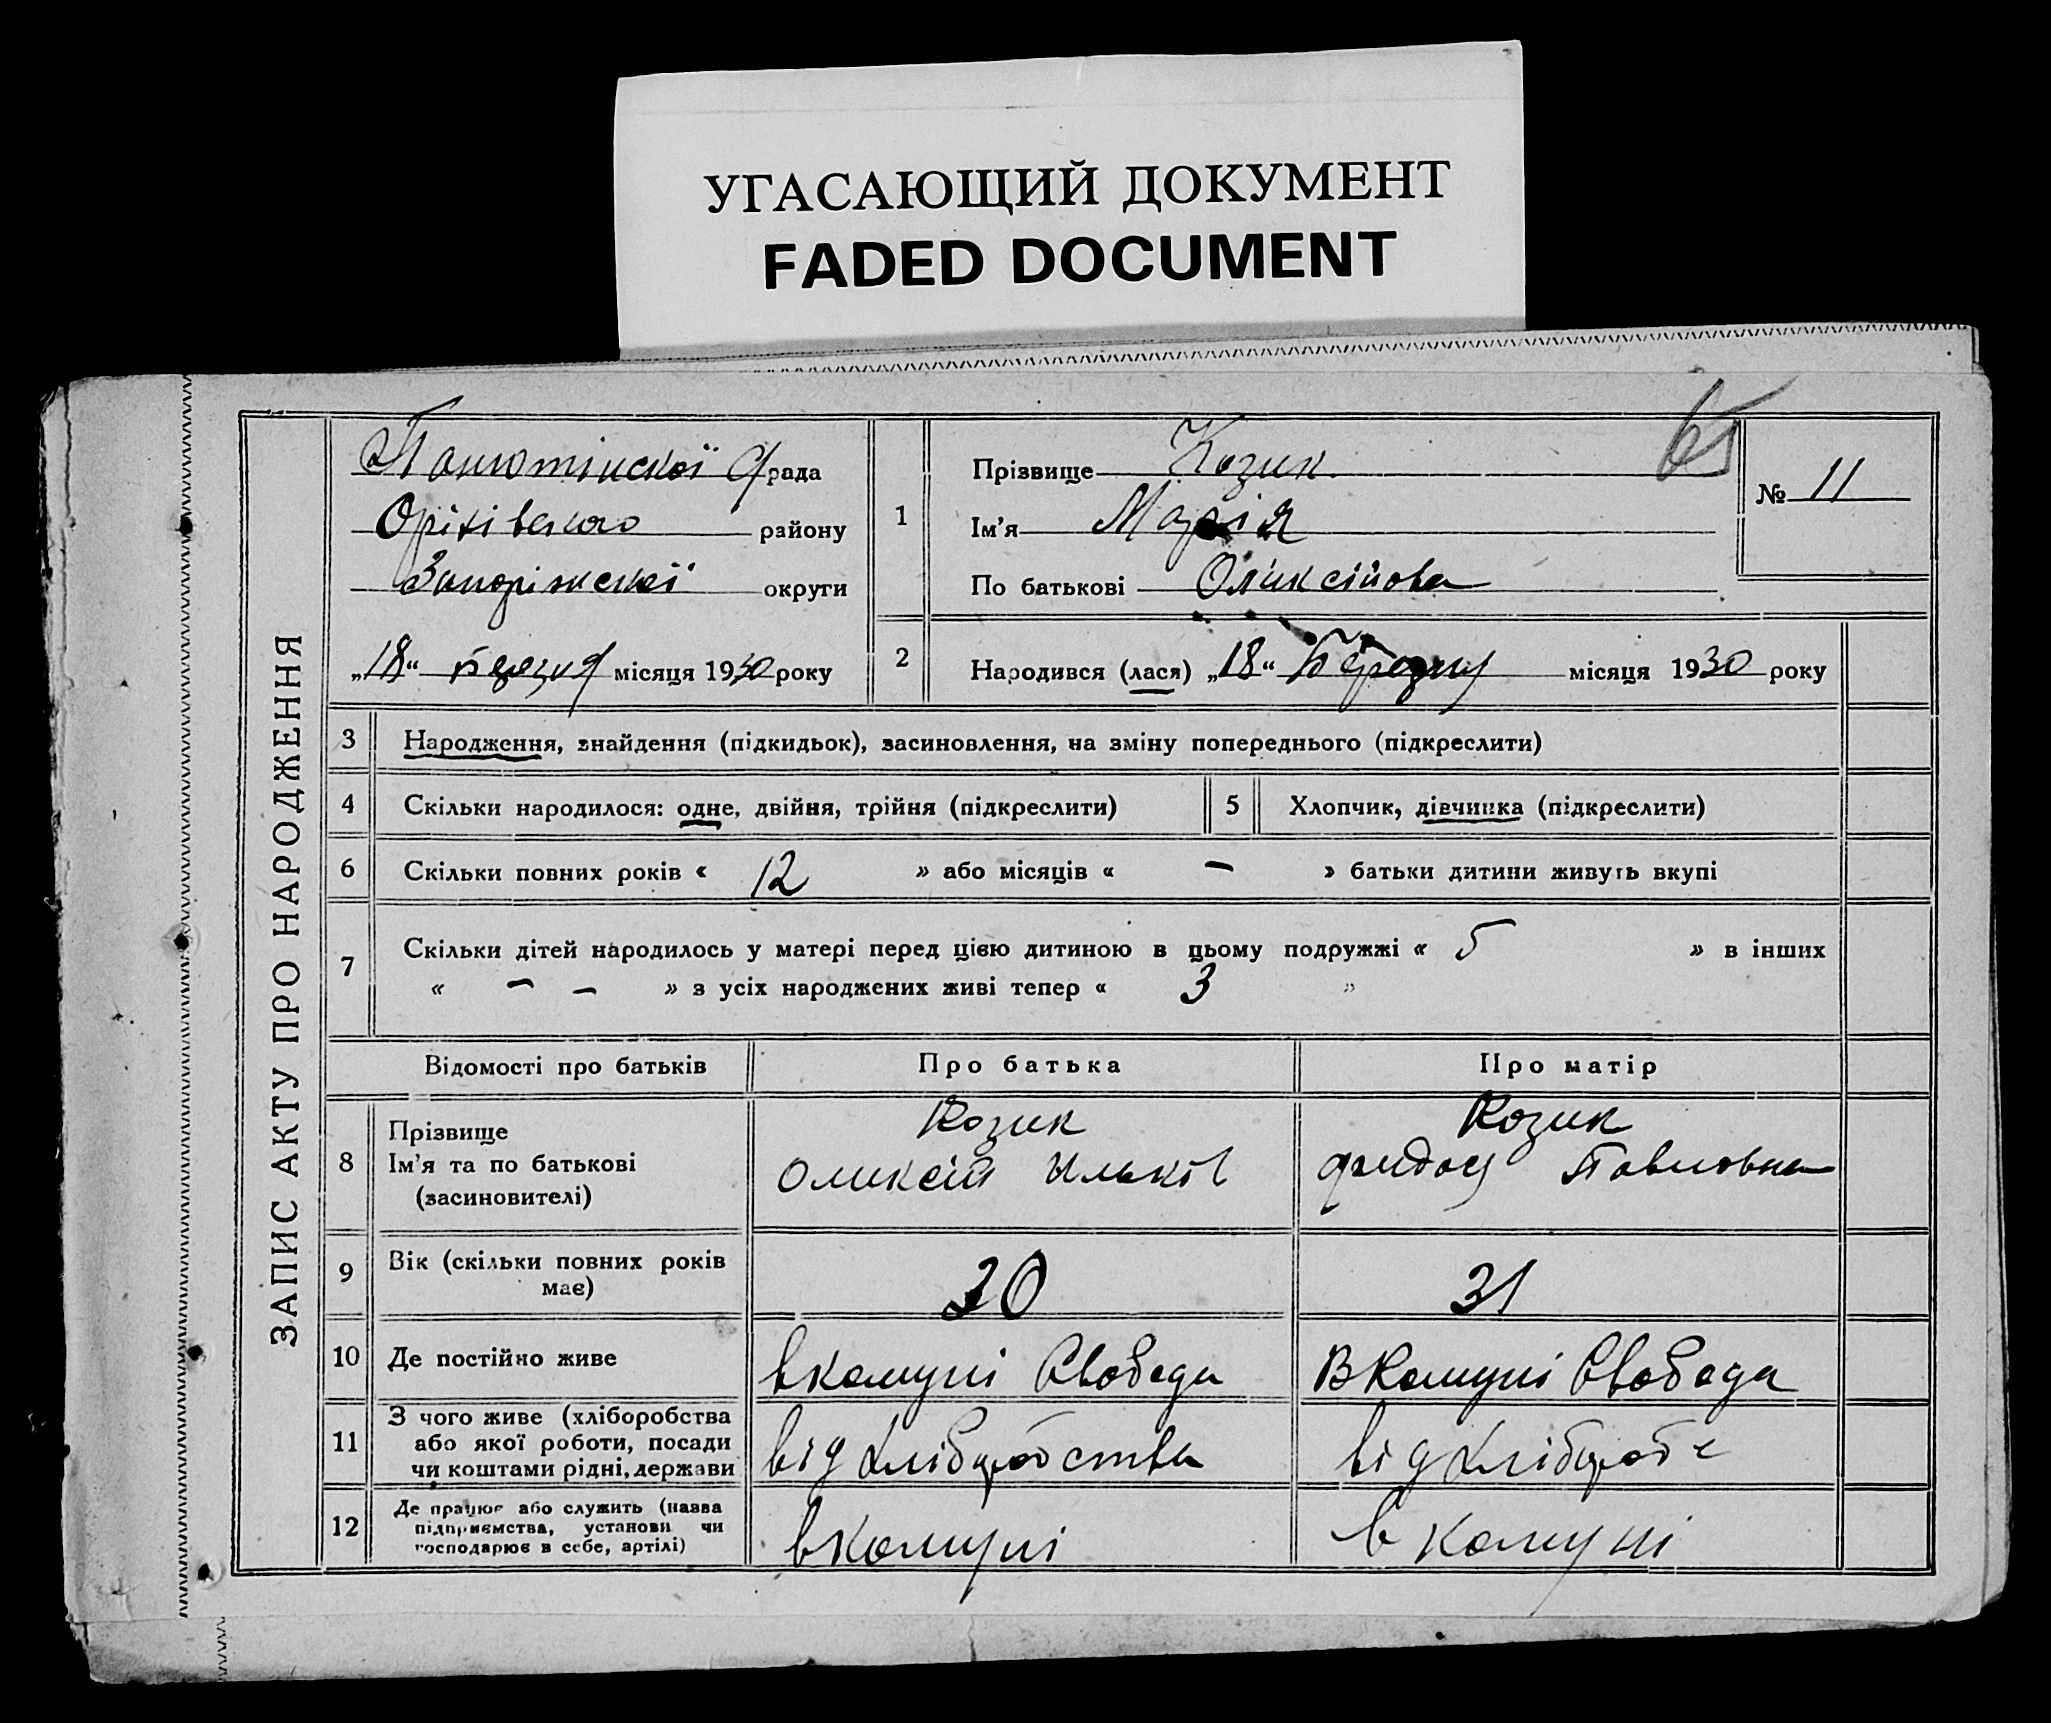 УГАСАЮЩИЙ ДОКУМЕНТ
FADED DOCUMENT
65
ЗАПИС АКТУ ПРО НАРОДЖЕННЯ
рада
Оріхівского району
Запоріжскої округи
„18“ березня місяця 1930 року
1
Прізвище Козик
Ім'я Марія
По батькові Оликсійовна
№ 11
2
Народився (лася) „18“ березня місяця 1930 року
3 Народження, знайдення (підкидьок), засиновлення, на зміну попереднього (підкреслити)
4 Скільки народилося: одне, двійня, трійня (підкреслити)
5 Хлопчик, дівчинка (підкреслити)
6 Скільки повних років « 12 » або місяців « — » батьки дитини живуть вкупі
7 Скільки дітей народилось у матері перед цією дитиною в цьому подружжі « 5 » в інших
« — — » з усіх народжених живі тепер « 3 »
Відомості про батьків Про батька Про матір
8 Прізвище
Ім'я та по батькові
(засиновителі)
Козик
Оликсій Ильков
Козик
Павловна
9 Вік (скільки повних років
має)
30
31
10 Де постійно живе
в комуні Свобода
В Комуні Свобода
11 З чого живе (хліборобства
або якої роботи, посади
чи коштами рідні, держави
від хліборобства
від хлібороб
12 Де працює або служить (назва
підприємства, установи чи
господарює в себе, артілі)
в комуні
в комуні